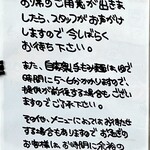 お席のご用意が出来ま
したら、スタッフがお声がけ
しますので今しばらく
お待ち下さい。
また、自家製手もみ麺は、ゆで
時間に5〜6分かかりますので、
提供が前後する場合もござい
ますのでご了承下さい。
その他、メニューによってはお待たせ
する場合もありますのでお急ぎの
お客様は、お時間に余裕の